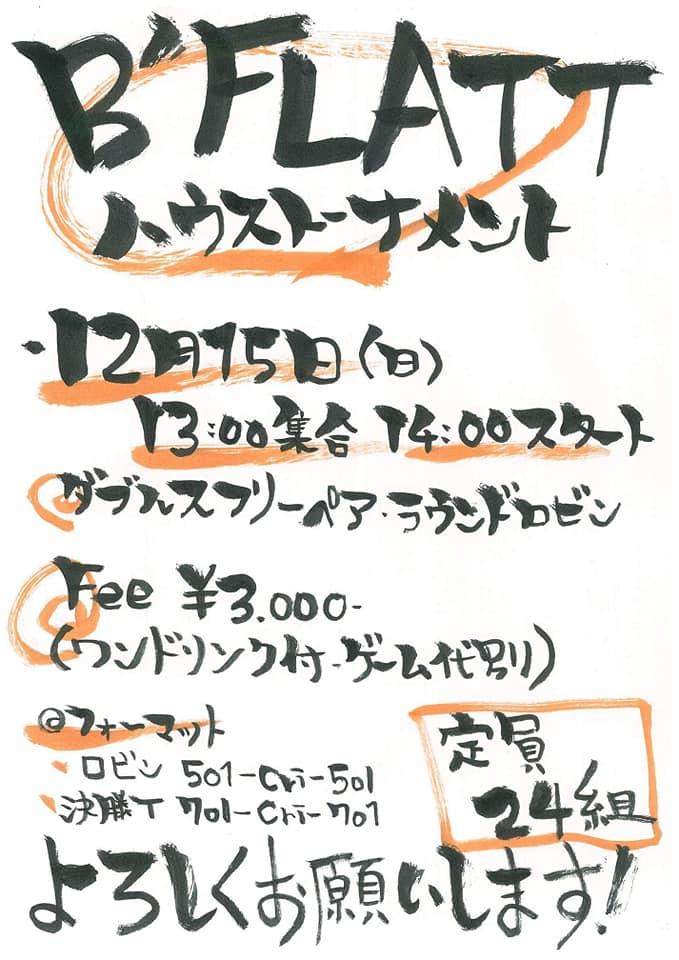 B'FLATT
ハウストーナメント
・12月15日(日)
13:00集合 14:00スタート
@ダブルスフリーペア・ラウンドロビン
@Fee ¥3.000-
(ワンドリンク付・ゲーム代別)
@フォーマット
・ロビン 501-Cri-501
・決勝T 701-Cri-701
定員
24組
よろしくお願いします!